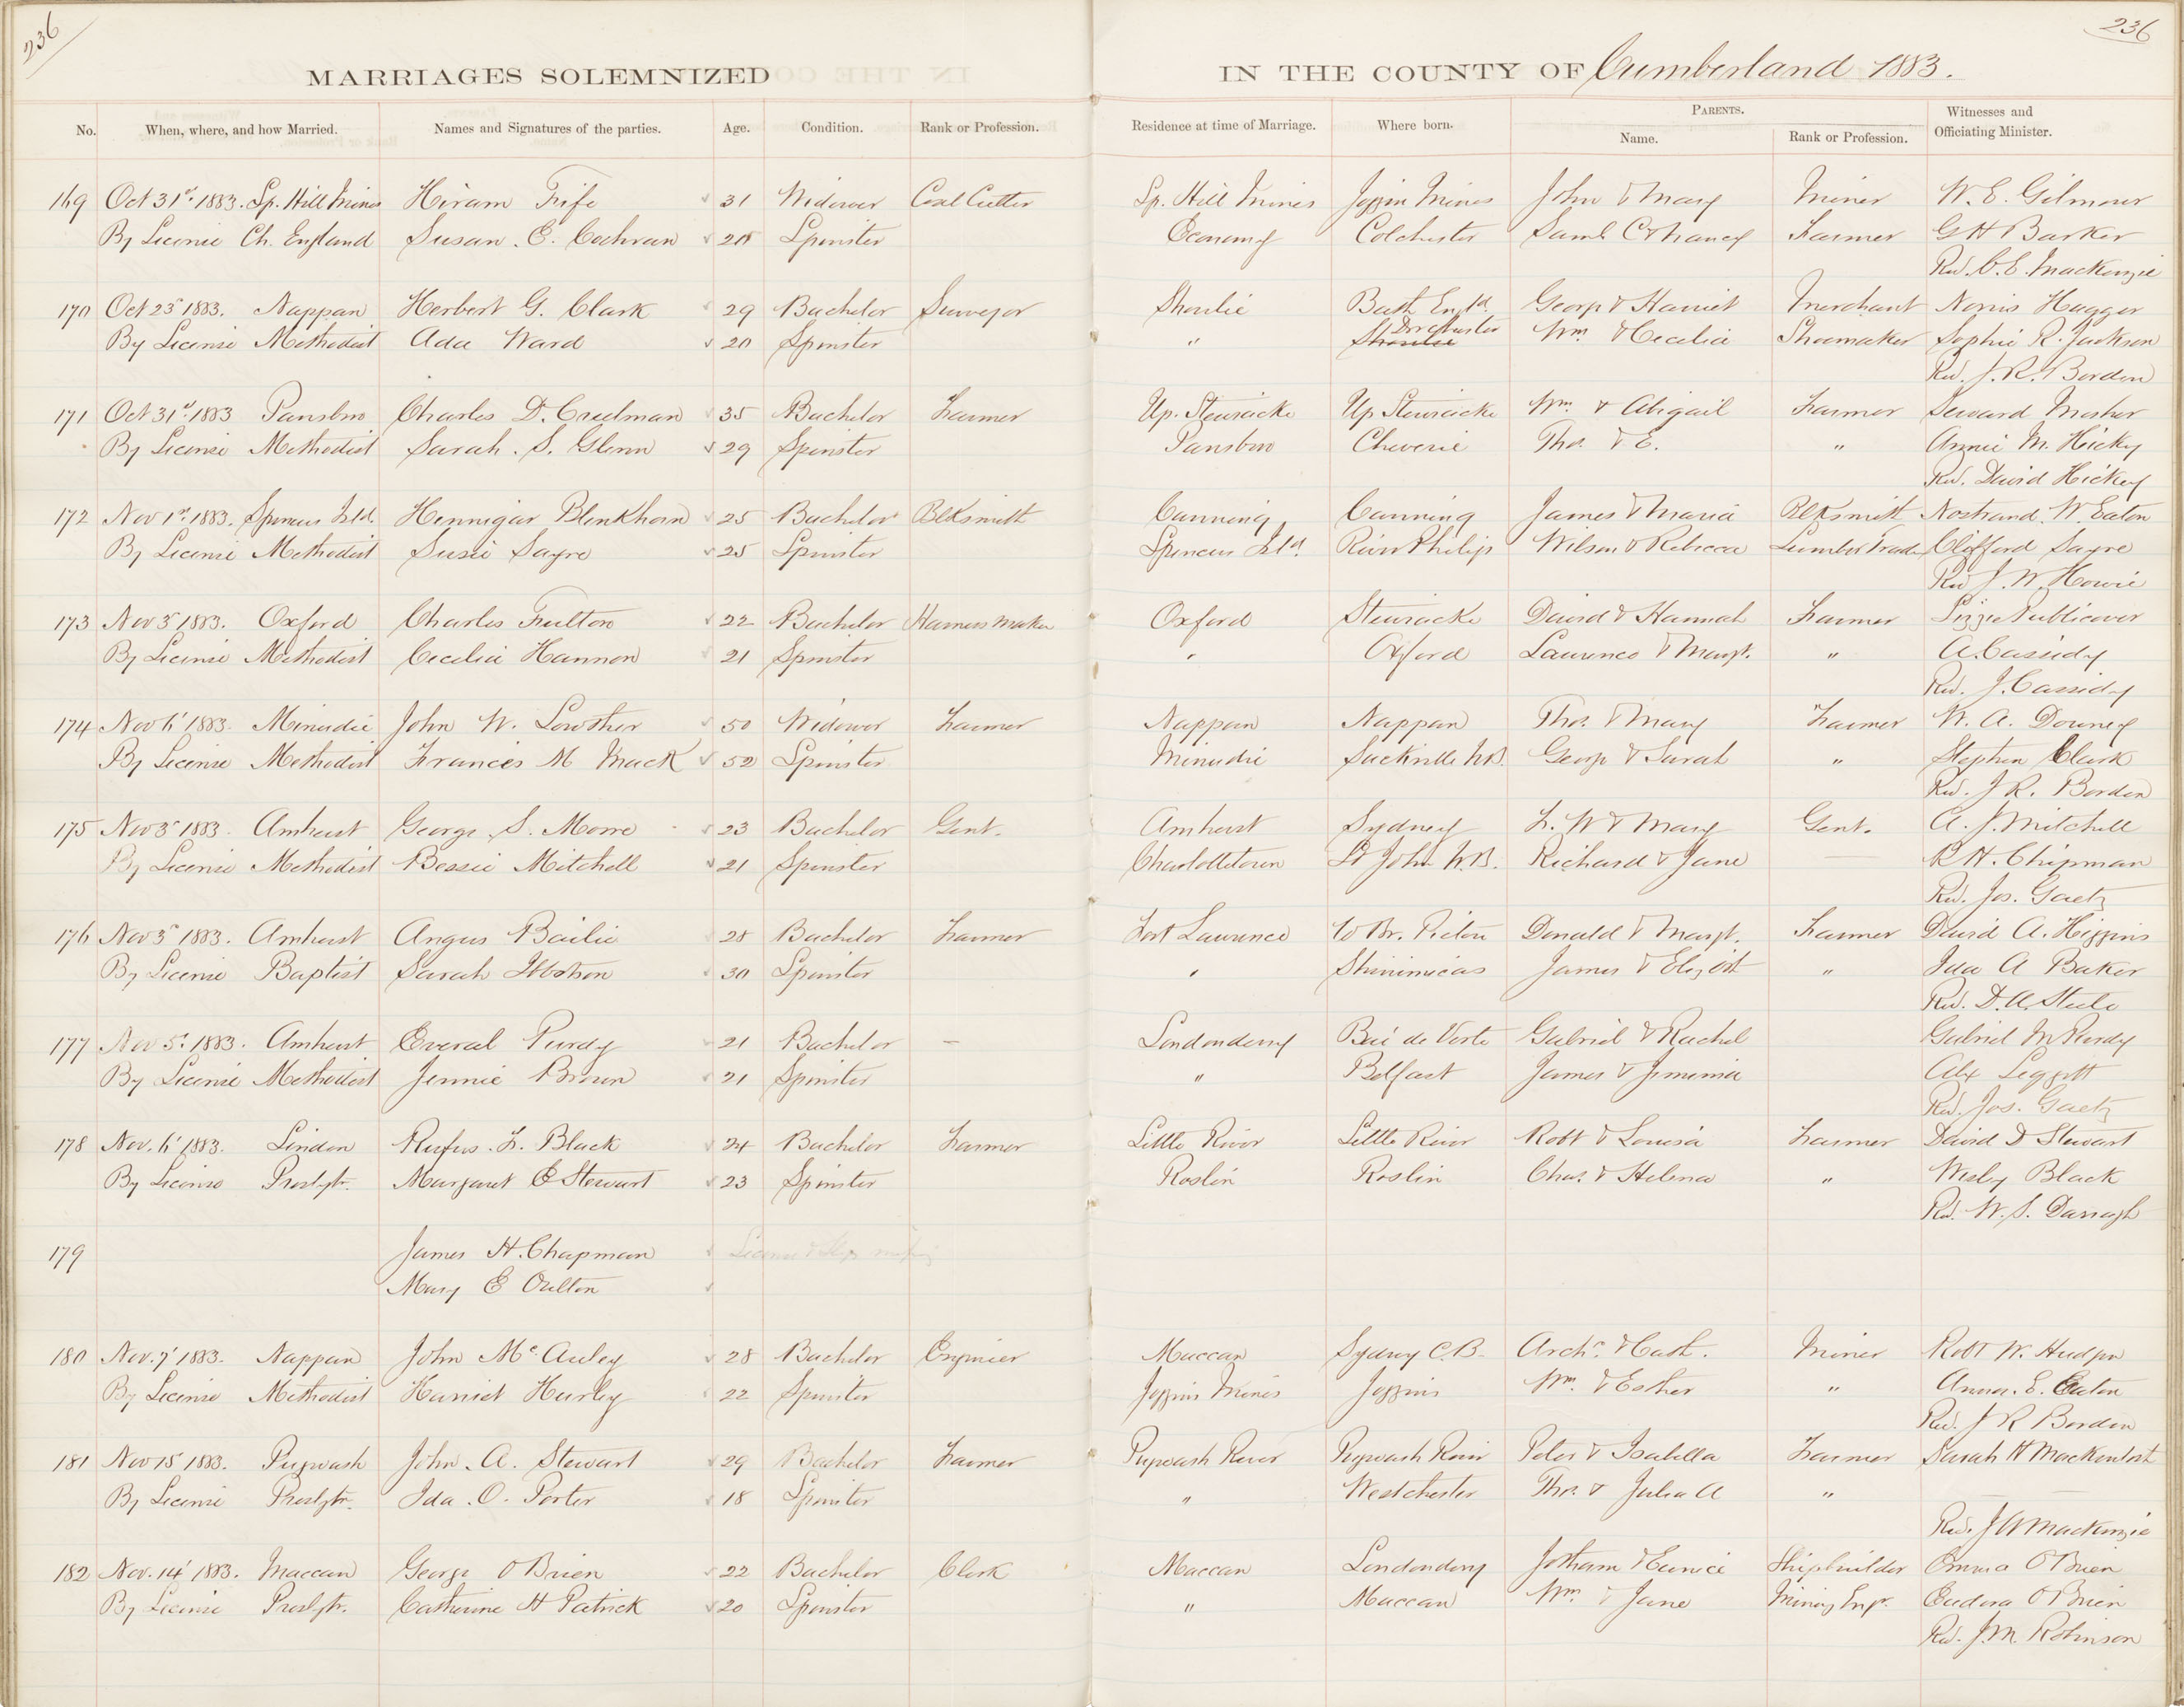 236
236
MARRIAGES SOLEMNIZED IN THE COUNTY OF Cumberland 1883.
No. When, where, and how Married. Names and Signatures of the parties. Age. Condition. Rank or Profession. Residence at time of Marriage. Where born. PARENTS. Name. Rank or Profession. Witnesses and Officiating Minister.
169 Oct 31st 1883. Sp. Hill Mines Hiram Fife 31 Widower Coal Cutter Sp. Hill Mines Joggin Mines John & Mary Miner W. E. Gilmour
By License Ch. England Susan. E. Cochran Spinster Economy Colchester Saml C & Nancy Farmer G H Barker
Rev. C. E. Mackenzie
170 Oct 23 1883. Nappan Herbert G. Clark 29 Bachelor Surveyor Shoulie Bath Engd. George & Harriet Merchant Norris Hagger
By License Methodist Ada Ward 20 Spinster " Dorchester Wm. & Cecelia Shoemaker Sophie R. Jackson
Rev. J. R. Borden
171 Oct 31st 1883 Parsboro Charles D. Creelman 35 Bachelor Farmer Up. Stewiacke Up Stewiacke Wm. & Abigail Farmer Seward Mosher
By License Methodist Sarah. S. Glenn 29 Spinster Parsboro Cheverie Thos. & E. " Annie M. Hickey
Rev. David Hickey
172 Nov 1st 1883. Spencers Isld. Hennigar Blenkhorn 25 Bachelor Blksmith Canning Canning James & Maria Blksmith Nostrand. W. Eaton
By License Methodist Susie Sayre 25 Spinster Spencers Isld. River Philip Wilson & Rebecca Lumber Trade Clifford Sayre
Rev J. W. Howie
173 Nov 3 1883. Oxford Charles Fulton 22 Bachelor Harness Maker Oxford Stewiacke David & Hannah Farmer Lizzie Publicover
By License Methodist Cecelia Hannon 21 Spinster " Oxford Laurence & Margt. " A. Cassidy
Rev. J. Cassidy
174 Nov 6 1883. Minudie John W. Lowther 50 Widower Farmer Nappan Nappan Thos. & Mary Farmer W. A. Downey
By License Methodist Francis M Mack 52 Spinster Minudie Sackville N.B. George & Sarah " Stephen Clark
Rev. J R. Borden
175 Nov 3 1883. Amherst George. S. Morre 23 Bachelor Gent. Amherst Sydney F. W & Mary Gent. A. J. Mitchell
By License Methodist Bessie Mitchell 21 Spinster Charlottetown St John N.B. Richard & Jane — R H. Chipman
Rev. Jos. Gaetz
176 Nov 3 1883. Amherst Angus Bailie 28 Bachelor Farmer Fort Laurence W Br. Pictou Donald & Margt. Farmer David A. Higgins
By License Baptist Sarah Ibbotson 30 Spinster " Shinimicas James & Elizbth " Ida A Baker
Rev. D. A. Steele
177 Nov 5. 1883. Amherst Everal Purdy 21 Bachelor — Londonderry Baie de Verte Gabriel & Rachel Gabriel M Purdy
By License Methodist Jennie Brown 21 Spinster " Belfast James & Jemima Alex Leggett
Rev. Jos. Gaetz
178 Nov. 6 1883. Linden Rufus. F. Black 24 Bachelor Farmer Little River Little River Robt & Louisa Farmer David D Stewart
By License Presbytr. Margaret E Stewart 23 Spinster Roslin Roslin Chas. & Helena " Wesley Black
Rev. W. S. Darragh
179 James H. Chapman License
Mary E Oulton
180 Nov. 7 1883. Nappan John McAuley 28 Bachelor Engineer Maccan Sydney C.B. Archd. & Cath. Miner Robt W. Hudson
By License Methodist Harriet Hurley 22 Spinster Joggins Mines Joggins Wm. & Esther " Anna. E. Eaton
Rev. J R Borden
181 Nov 15 1883. Pugwash John. A. Stewart 29 Bachelor Farmer Pugwash River Pugwash River Peter & Isabella Farmer Sarah H Mackintosh
By License Presbytr. Ida. O. Porter 18 Spinster " Westchester Thos. & Julia A "
Rev. J A Mackenzie
182 Nov. 14 1883. Maccan George O'Brien 22 Bachelor Clerk Maccan Londonderry Jotham & Eunice Shipbuilder Emma O'Brien
By License Presbytr. Catherine H Patrick 20 Spinster " Maccan Wm. & Jane Mining Engr. Eudora O'Brien
Rev. J. M. Robinson